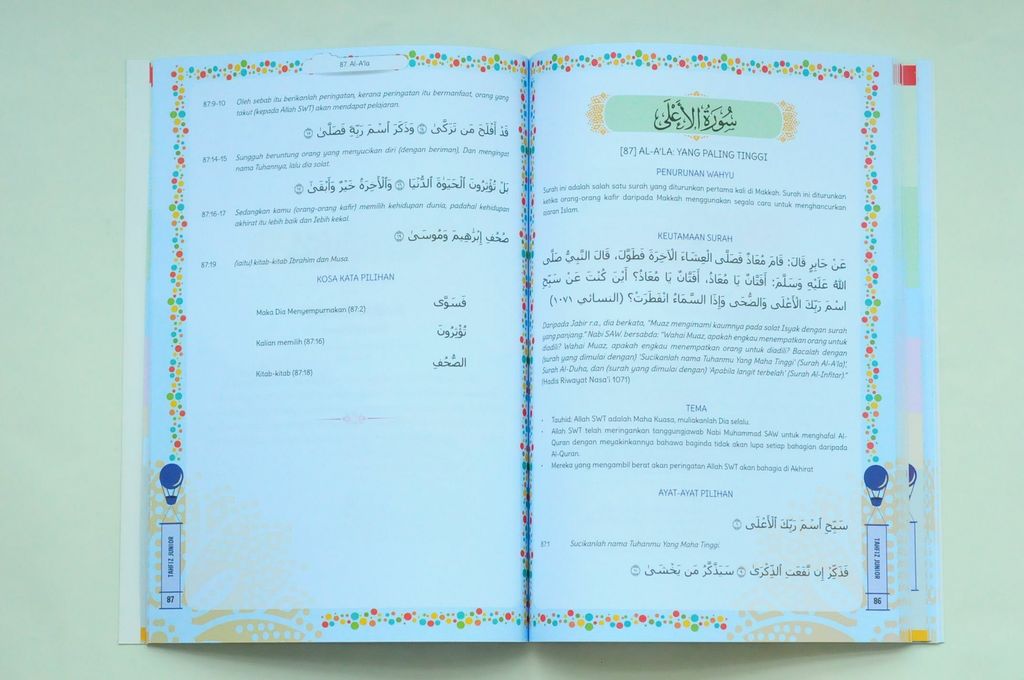 سُورَةُ الأَعْلَى
[87] AL-A'LA: YANG PALING TINGGI
PENURUNAN WAHYU
Surah ini adalah salah satu surah yang diturunkan pertama kali di Makkah. Surah ini diturunkan
ketika orang-orang kafir daripada Makkah menggunakan segala cara untuk menghancurkan
ajaran Islam.
KEUTAMAAN SURAH
عَنْ جَابِرٍ قَالَ: قَامَ مُعَاذٌ فَصَلَّى الْعِشَاءَ الْآخِرَةَ فَطَوَّلَ، قَالَ النَّبِيُّ صَلَّى
اللهُ عَلَيْهِ وَسَلَّمَ: أَفَتَّانٌ يَا مُعَاذُ، أَفَتَّانٌ يَا مُعَاذُ؟ أَيْنَ كُنْتَ عَنْ سَبِّحِ
اسْمَ رَبِّكَ الْأَعْلَى وَالضُّحَى وَإِذَا السَّمَاءُ انْفَطَرَتْ؟ (النسائي ١٠٧١)
Daripada Jabir r.a., dia berkata, "Muaz mengimami kaumnya pada solat Isyak dengan surah
yang panjang." Nabi SAW. bersabda: "Wahai Muaz, apakah engkau menempatkan orang untuk
diadili? Wahai Muaz, apakah engkau menempatkan orang untuk diadili? Bacalah dengan
(surah yang dimulai dengan) 'Sucikanlah nama Tuhanmu Yang Maha Tinggi' (Surah Al-A'la)',
Surah Al-Duha, dan (surah yang dimulai dengan) 'Apabila langit terbelah' (Surah Al-Infitar)."
(Hadis Riwayat Nasa'i 1071)
TEMA
• Tauhid: Allah SWT adalah Maha Kuasa, muliakanlah Dia selalu.
• Allah SWT telah meringankan tanggungjawab Nabi Muhammad SAW untuk menghafal Al-
Quran dengan meyakinkannya bahawa baginda tidak akan lupa setiap bahagian daripada
Al-Quran.
• Mereka yang mengambil berat akan peringatan Allah SWT akan bahagia di Akhirat
AYAT-AYAT PILIHAN
سَبِّحِ ٱسْمَ رَبِّكَ ٱلْأَعْلَى ۝١
87:1 Sucikanlah nama Tuhanmu Yang Maha Tinggi.
فَذَكِّرْ إِن نَّفَعَتِ ٱلذِّكْرَىٰ ۝٩ سَيَذَّكَّرُ مَن يَخْشَىٰ ۝١٠
TAHFIZ JUNIOR
86
87 Al-A'la
87:9-10 Oleh sebab itu berikanlah peringatan, kerana peringatan itu bermanfaat, orang yang
takut (kepada Allah SWT) akan mendapat pelajaran.
قَدْ أَفْلَحَ مَن تَزَكَّىٰ ۝١٤ وَذَكَرَ ٱسْمَ رَبِّهِۦ فَصَلَّىٰ ۝١٥
87:14-15 Sungguh beruntung orang yang menyucikan diri (dengan beriman), Dan mengingat
nama Tuhannya, lalu dia solat.
بَلْ تُؤْثِرُونَ ٱلْحَيَوٰةَ ٱلدُّنْيَا ۝١٦ وَٱلْأَخِرَةُ خَيْرٌ وَأَبْقَىٰ ۝١٧
87:16-17 Sedangkan kamu (orang-orang kafir) memilih kehidupan dunia, padahal kehidupan
akhirat itu lebih baik dan lebih kekal.
صُحُفِ إِبْرَٰهِيمَ وَمُوسَىٰ ۝١٩
87:19 (iaitu) kitab-kitab Ibrahim dan Musa.
KOSA KATA PILIHAN
فَسَوَّى
Maka Dia Menyempurnakan (87:2)
تُؤْثِرُونَ
Kalian memilih (87:16)
الصُّحُفِ
Kitab-kitab (87:18)
TAHFIZ JUNIOR
87